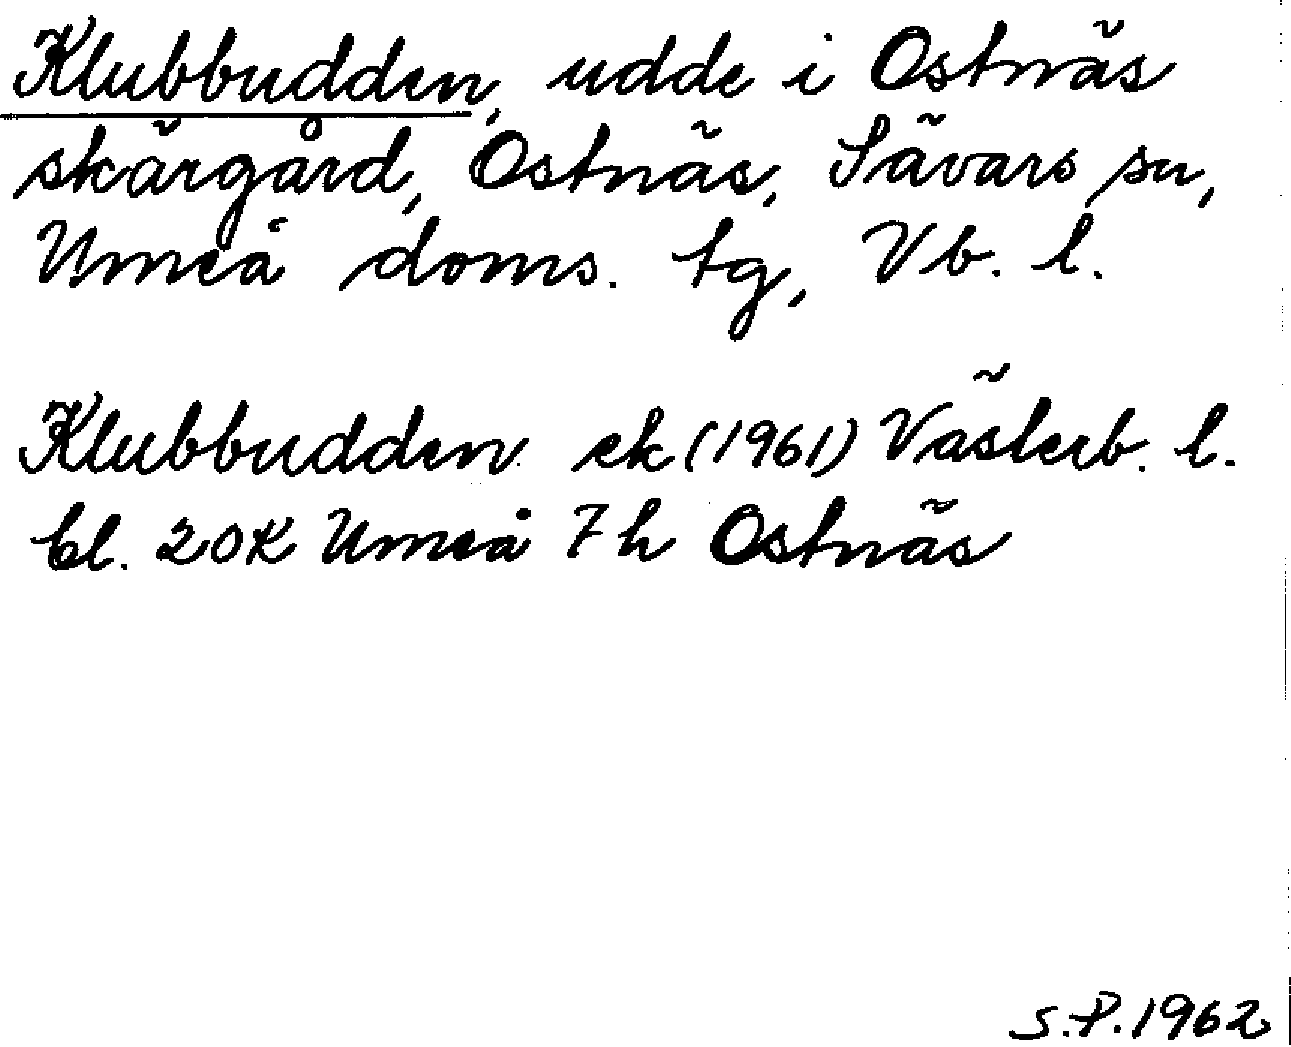 Klubbudden, udde i Ostnäs
skärgård, Ostnäs, Sävars sn,
Umeå doms. tg, Vb. l.
Klubbudden ek (1961) Västerb. l.
bl. 20K Umeå 7h Ostnäs
S.P. 1962